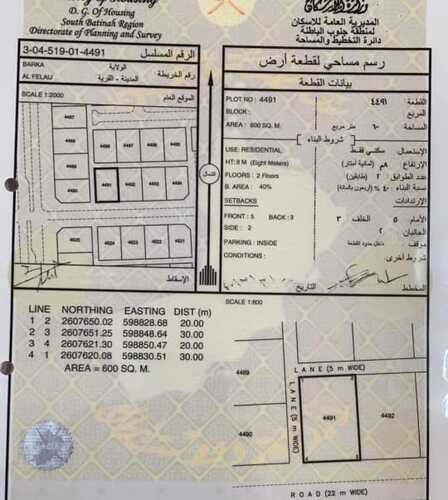 of Housing
D. G. Of Housing
South Batinah Region
Directorate of Planning and Survey
المديرية العامة للإسكان
لمنطقة جنوب الباطنة
دائرة التخطيط والمساحة
3-04-519-01-4491 الرقم المسلسل
BARKA الولاية
AL FELAIJ المدينة - القرية رقم الخريطة
SCALE 1:2000 الموقع العام
4487
4489
4490
4491 4492 4493 4494
4525 4524 4523 4522 4521
الشمال
الإسقاط
رسم مساحي لقطعة أرض
بيانات القطعة
PLOT NO : 4491 ٤٤٩١ القطعة
BLOCK: المربع
AREA : 600 SQ. M. ٦٠٠ متر مربع
شروط البناء
USE: RESIDENTIAL سكني فقط الاستعمال
HT: 8 M (Eight Meters) ٨م (ثمانية أمتار) الارتفاع
FLOORS : 2 Floors ٢ (طابقين) عدد الطوابق
B. AREA : 40% ٤٠٪ (أربعون بالمائة) نسبة البناء
SETBACKS الارتدادات
FRONT : 5 BACK : 3 ٣ الخلف ٥ الأمام
SIDE : 2 ٢ الجانبان
PARKING : INSIDE داخل حدود القطعة موقف
CONDITIONS : شروط أخرى
التاريخ المخطط
LINE NORTHING EASTING DIST (m)
1 2 2607650.02 598828.68 20.00
2 3 2607651.25 598848.64 30.00
3 4 2607621.30 598850.47 20.00
4 1 2607620.08 598830.51 30.00
AREA = 600 SQ. M.
SCALE 1:600
LANE (5 m WIDE)
4489
LANE (5 m WIDE)
4490
4491
4492
ROAD (22 m WIDE)